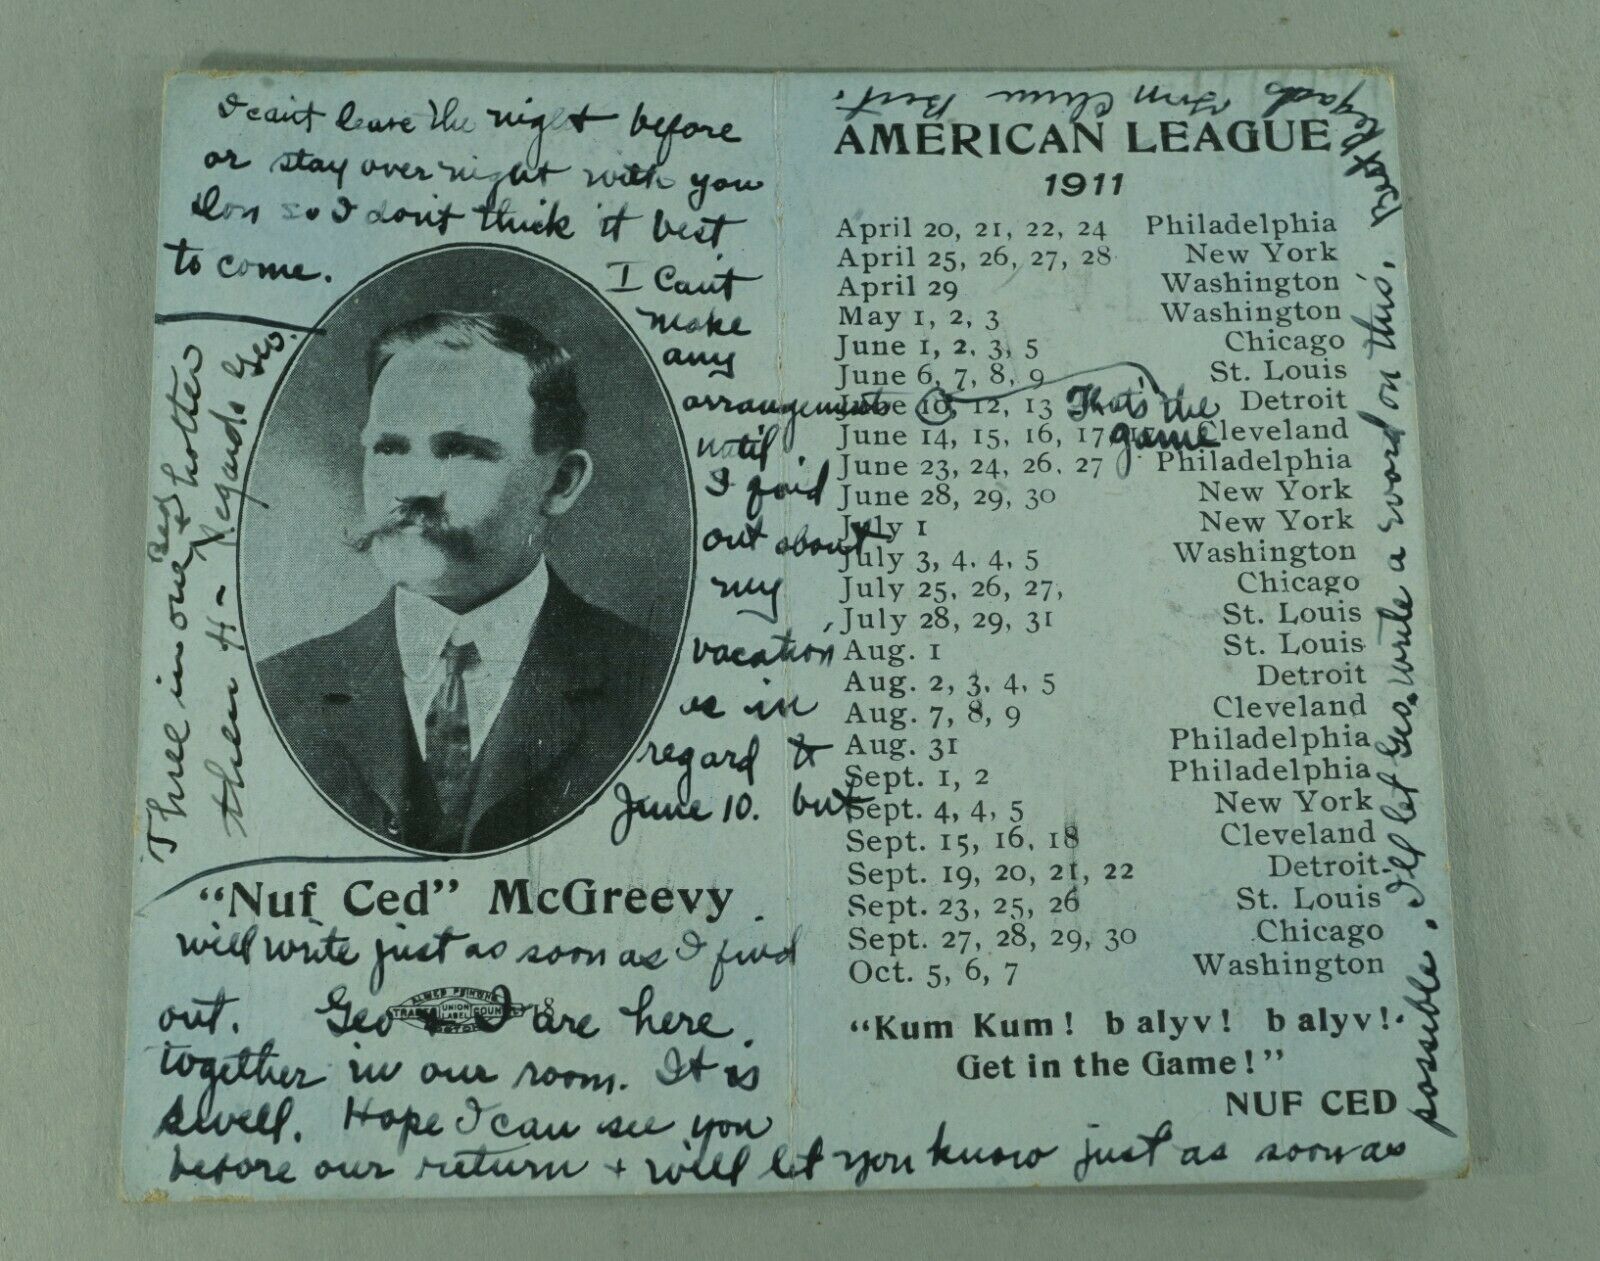 I can't leave the night before
or stay over night with you
Don so I don't think it best
to come.
I Can't
make
any
arrangements
until
I find
out about
my
vacation,
or in
regard to
June 10. but
"Nuf Ced" McGreevy
will write just as soon as I find
out. Geo + I are here
together in our room. It is
swell. Hope I can see you
before our return + will let you know just as soon as
possible. I'll let Geo. write a word on this. Best Regards from Chum Bert.
Three in one bed + hotter
then H- Regards Geo.
UNION
LABEL
TRADES COUNCIL
18
AMERICAN LEAGUE
1911
April 20, 21, 22, 24 Philadelphia
April 25, 26, 27, 28 New York
April 29 Washington
May 1, 2, 3 Washington
June 1, 2, 3, 5 Chicago
June 6, 7, 8, 9 St. Louis
June 10, 12, 13 Detroit
That's the
game
June 14, 15, 16, 17 Cleveland
June 23, 24, 26, 27 Philadelphia
June 28, 29, 30 New York
July 1 New York
July 3, 4, 4, 5 Washington
July 25, 26, 27, Chicago
July 28, 29, 31 St. Louis
Aug. 1 St. Louis
Aug. 2, 3, 4, 5 Detroit
Aug. 7, 8, 9 Cleveland
Aug. 31 Philadelphia
Sept. 1, 2 Philadelphia
Sept. 4, 4, 5 New York
Sept. 15, 16, 18 Cleveland
Sept. 19, 20, 21, 22 Detroit
Sept. 23, 25, 26 St. Louis
Sept. 27, 28, 29, 30 Chicago
Oct. 5, 6, 7 Washington
"Kum Kum! balyv! balyv!
Get in the Game!"
NUF CED